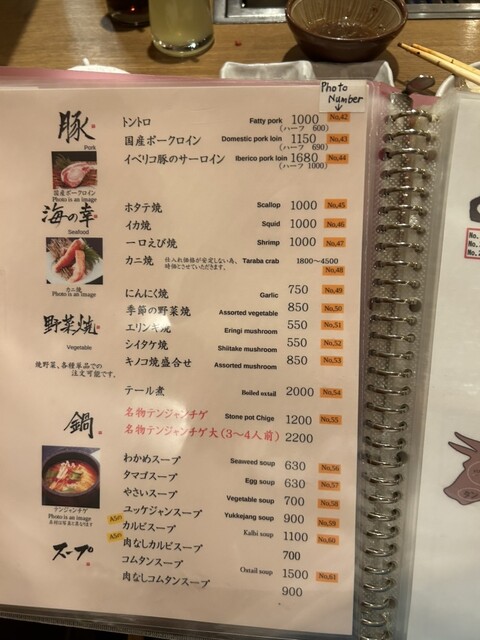 Photo
Number
↓
豚
Pork
トントロ Fatty pork 1000 No,42
(ハーフ 600)
国産ポークロイン Domestic pork loin 1150 No,43
(ハーフ 690)
イベリコ豚のサーロイン Iberico pork loin 1680 No,44
(ハーフ 1000)
国産ポークロイン
Photo is an image
海の幸
Seafood
ホタテ焼 Scallop 1000 No,45
イカ焼 Squid 1000 No,46
一口えび焼 Shrimp 1000 No,47
カニ焼 仕入れ価格が安定しない為、 Taraba crab 1800〜4500
時価にさせていただきます。 No,48
カニ焼
Photo is an image
野菜焼
Vegetable
にんにく焼 Garlic 750 No,49
季節の野菜焼 Assorted vegetable 850 No,50
エリンギ焼 Eringi mushroom 550 No,51
シイタケ焼 Shiitake mushroom 550 No,52
キノコ焼盛合せ Assorted mushroom 850 No,53
焼野菜、各種単品での
注文可能です。
テール煮 Boiled oxtail 2000 No,54
鍋
名物テンジャンチゲ Stone pot Chige 1200 No,55
名物テンジャンチゲ大(3〜4人前) 2200
テンジャンチゲ
Photo is an image
スープ
わかめスープ Seaweed soup 630 No,56
タマゴスープ Egg soup 630 No,57
やさいスープ Vegetable soup 700 No,58
ユッケジャンスープ Yukkejang soup 900 No,59
カルビスープ Kalbi soup 1100 No,60
肉なしカルビスープ 700
コムタンスープ Oxtail soup 1500 No,61
肉なしコムタンスープ 900